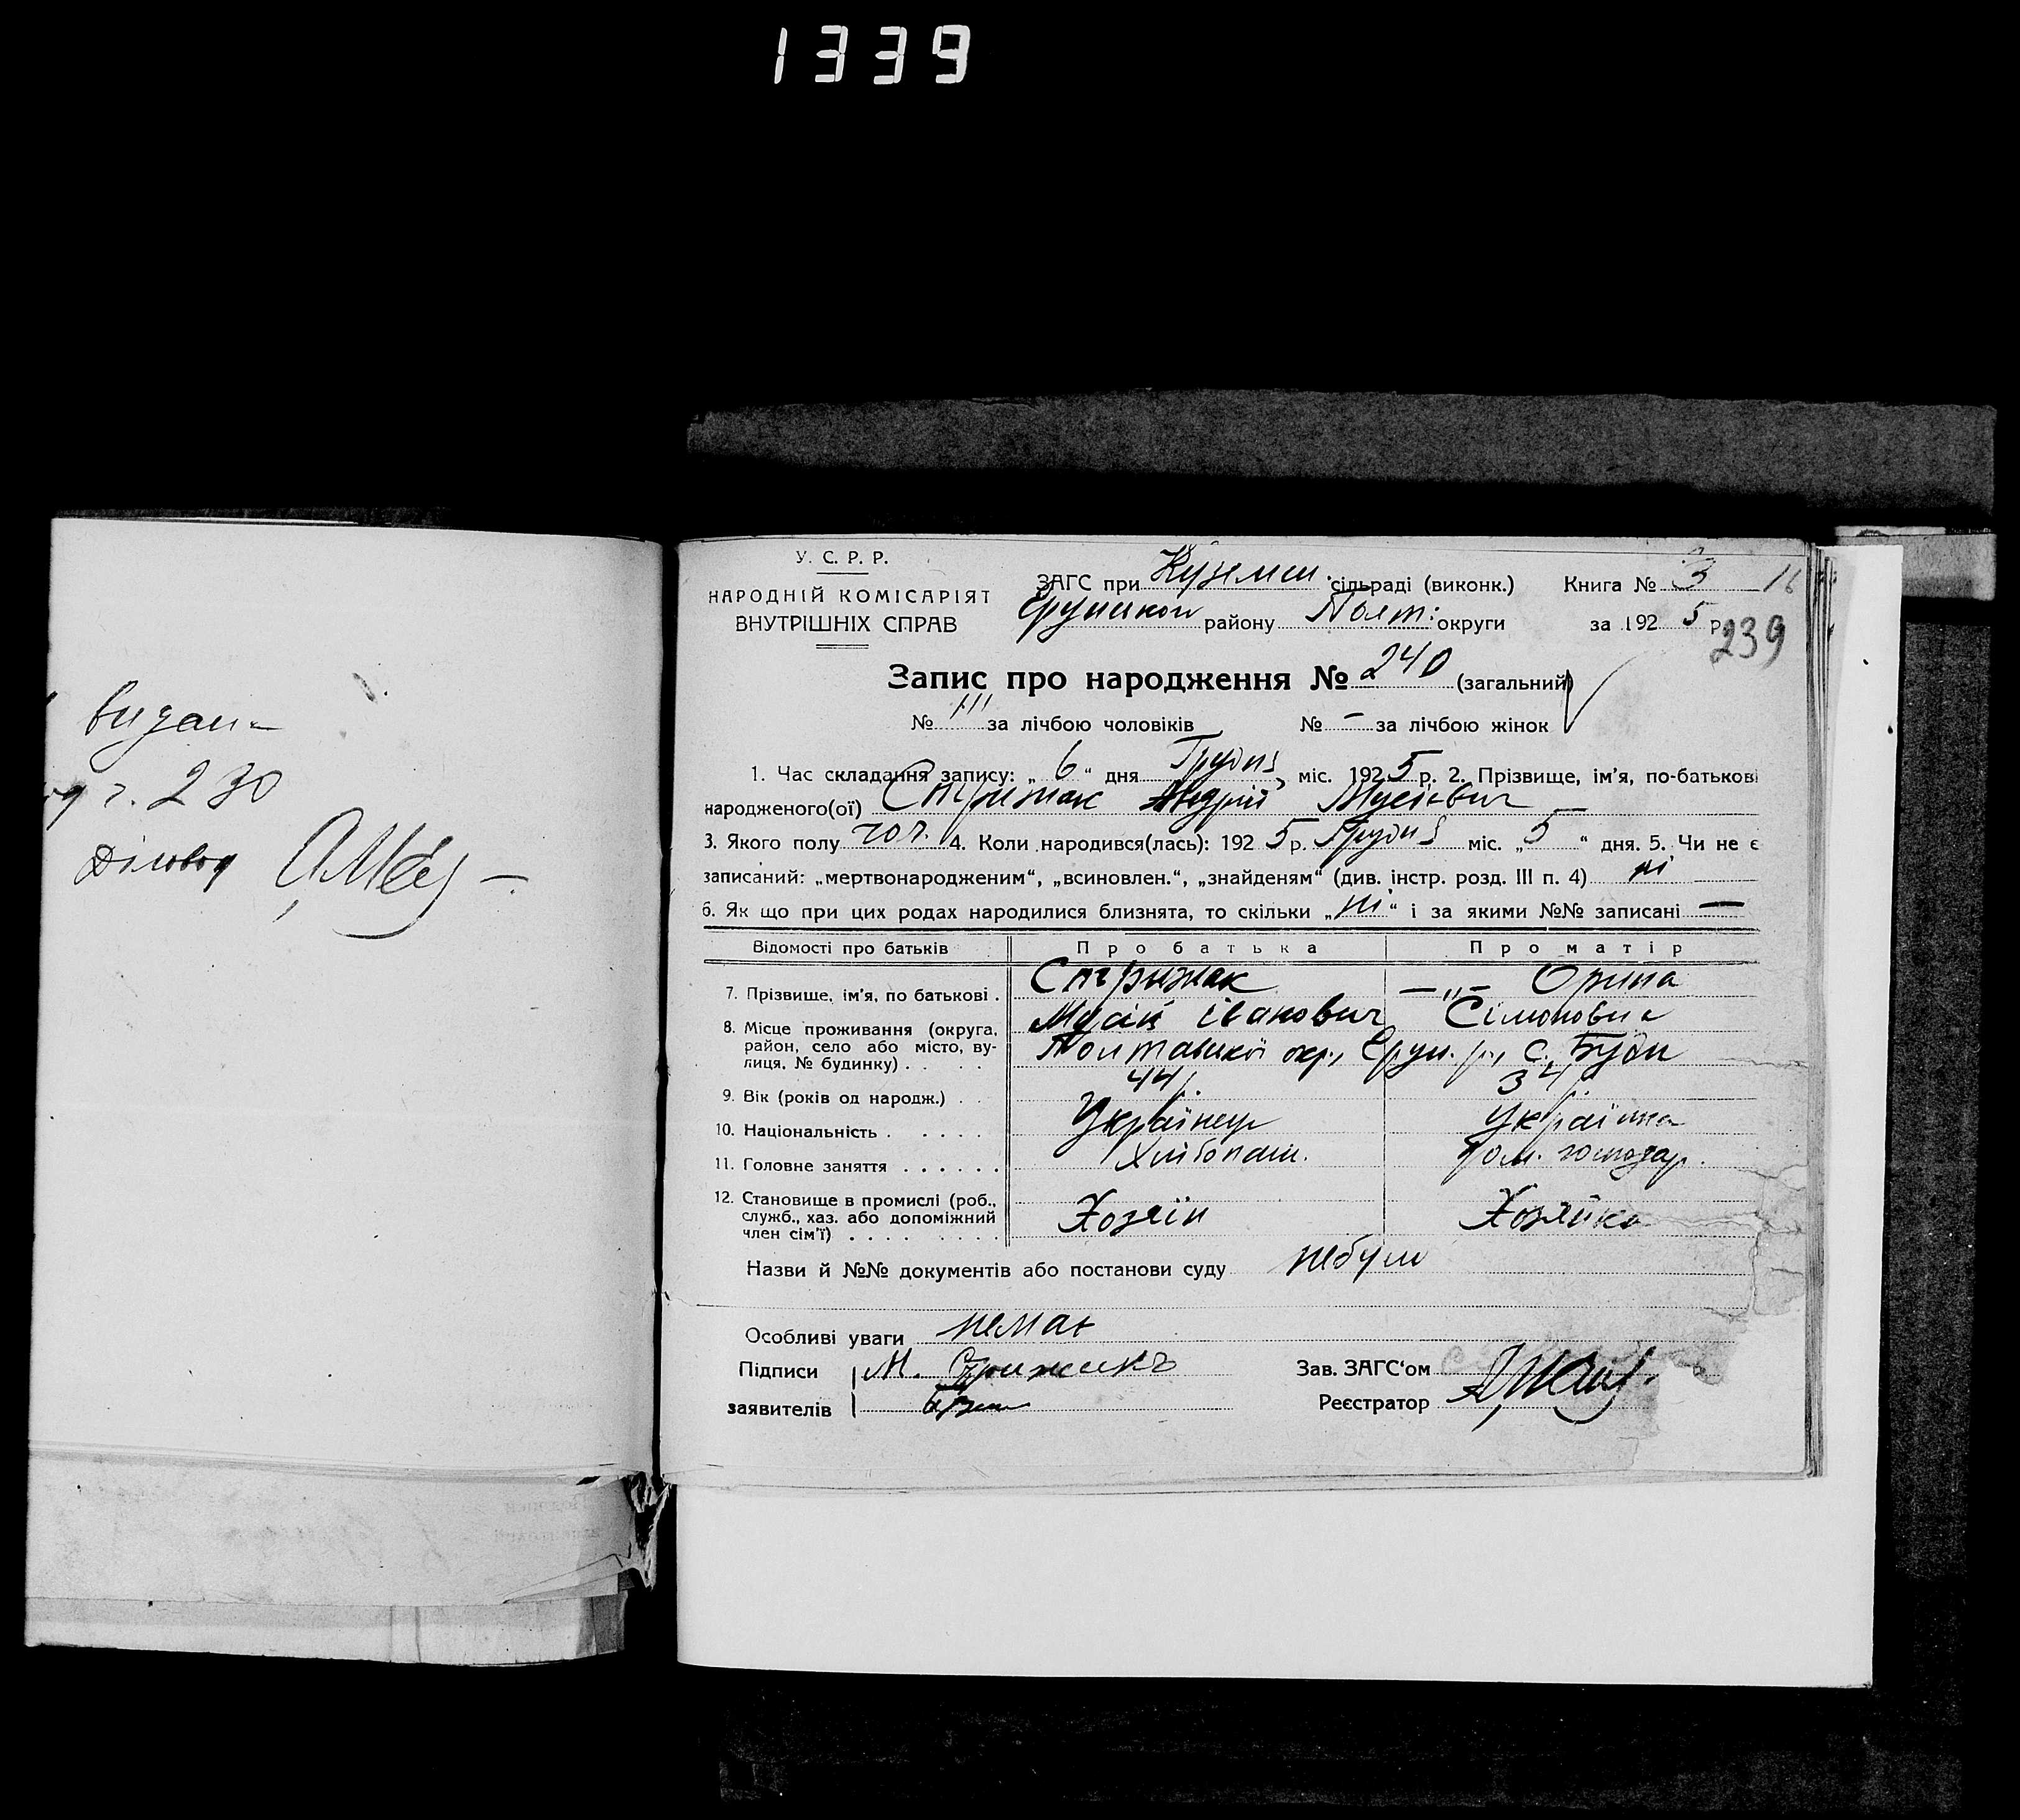 1339
видан-
г. 230
Діловод
У. С. Р. Р.
НАРОДНІЙ КОМІСАРІЯТ
ВНУТРІШНІХ СПРАВ
ЗАГС при Куземин. сільраді (виконк.) Книга № 3 16
району Полт: округи за 1925 р.
239
Запис про народження № 240 (загальний)
№ 111 за лічбою чоловіків № – за лічбою жінок
1. Час складання запису: „ 6 “ дня Грудня міс. 1925 р. 2. Прізвище, ім'я, по-батькові
народженого(ої) Стрижак Андрій Мусієвич
3. Якого полу чол. 4. Коли народився(лась): 1925 р. Грудня міс. „ 5 “ дня. 5. Чи не є
записаний: „мертвонародженим“, „всиновлен.“, „знайденям“ (див. інстр. розд. III п. 4) ні
6. Як що при цих родах народилися близнята, то скільки „ ні “ і за якими №№ записані —
Відомості про батьків Про батька Про матір
7. Прізвище, ім'я, по батькові . Стрижак — „ – Орина
Мусій Іванович Сімоновна
8. Місце проживання (округа, район, село або місто, ву-
лиця, № будинку) . . . . Полтавської окр., Грун. р., с. Буди
9. Вік (років од народж.) . . 44 р. 34 р.
10. Національність . . . . . Українець Українка
11. Головне заняття . . . . . . Хлібопаш. дом. господар.
12. Становище в промислі (роб.,
служб., хаз. або допоміжний
член сім'ї) . . . . . . . . Хозяїн Хозяйка
Назви й №№ документів або постанови суду небули
Особливі уваги немає
Підписи М. Стрижакъ Зав. ЗАГС'ом
заявителів Реєстратор